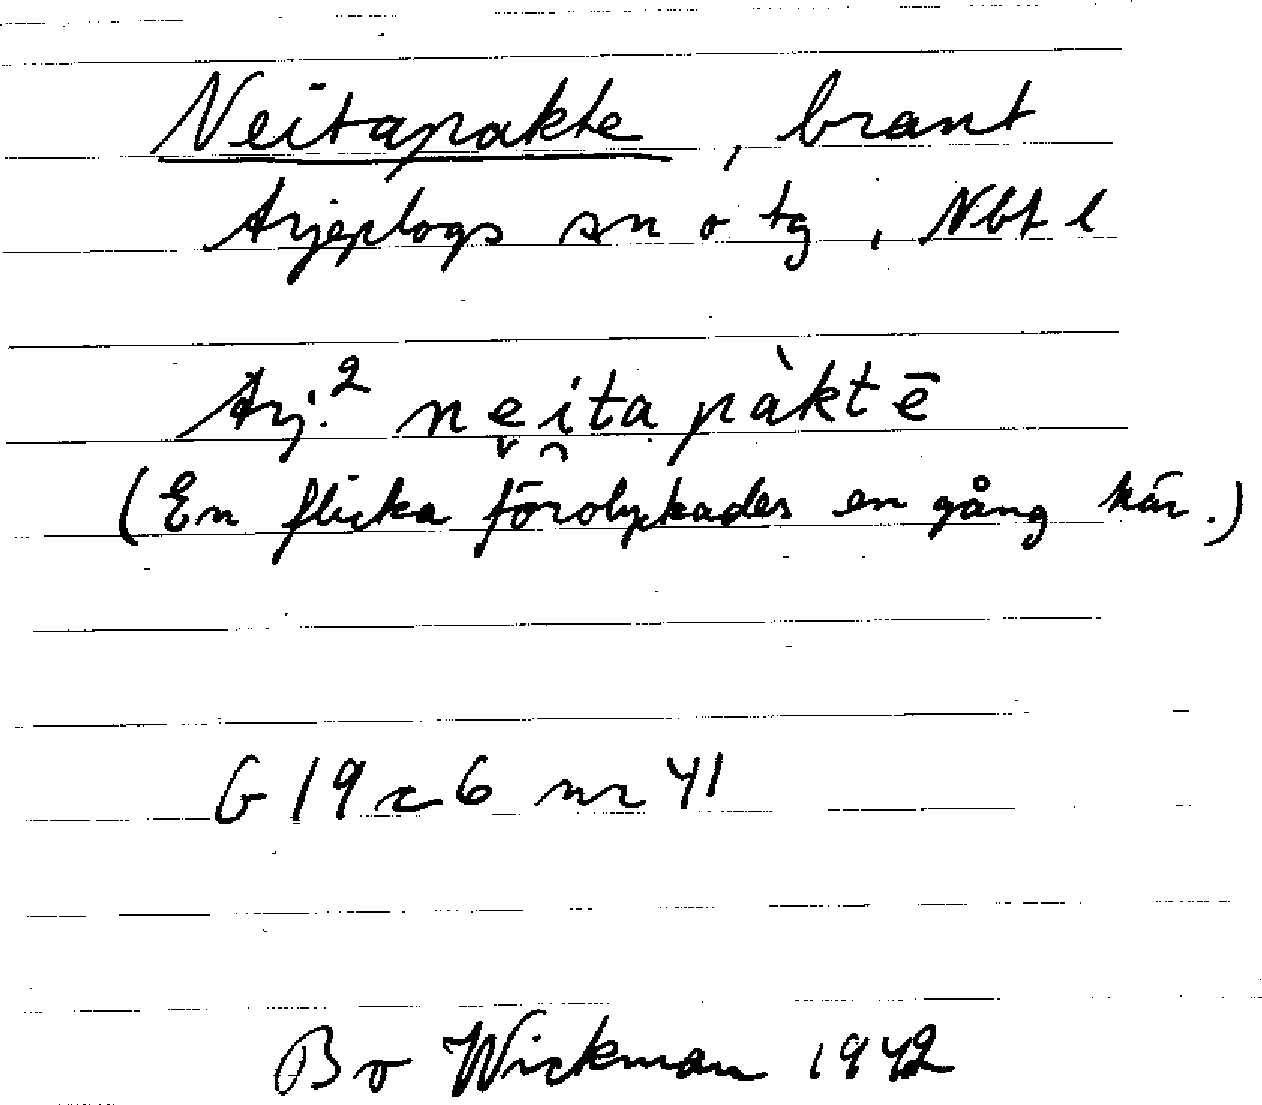 Neitapakte, brant
Arjeplogs sn o tg, Nbt l
Arj.² ne̬i̯ta pàktē
(En flicka förolyckades en gång här.)
G 19 c 6 nr 41
Bo Wickman 1942